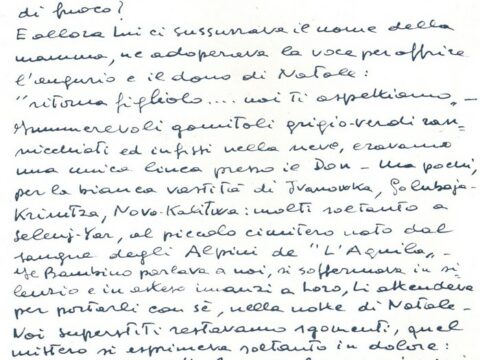 di fuoco?
E allora Lui ci sussurrava il nome della
mamma, ne adoperava la voce per offrire
l'augurio e il dono di Natale:
"ritorna figliolo.... noi ti aspettiamo„-
Innumerevoli gomitoli grigio-verdi ran-
nicchiati ed infissi nella neve, eravamo
una unica linea presso il Don - Ma pochi,
per la bianca vastità di Ivanowka, Golubaja-
Krinitza, Novo-Kalitwa: molti soltanto a
Selenj-Yar, al piccolo cimitero nato dal
sangue degli Alpini de "L'Aquila„-
Il Bambino parlava a noi, si soffermava in si
lenzio e in attesa innanzi a loro, li attendeva
per portarli con sè, nella notte di Natale-
Noi superstiti restavamo sgomenti, quel
mistero si esprimeva soltanto in dolore: